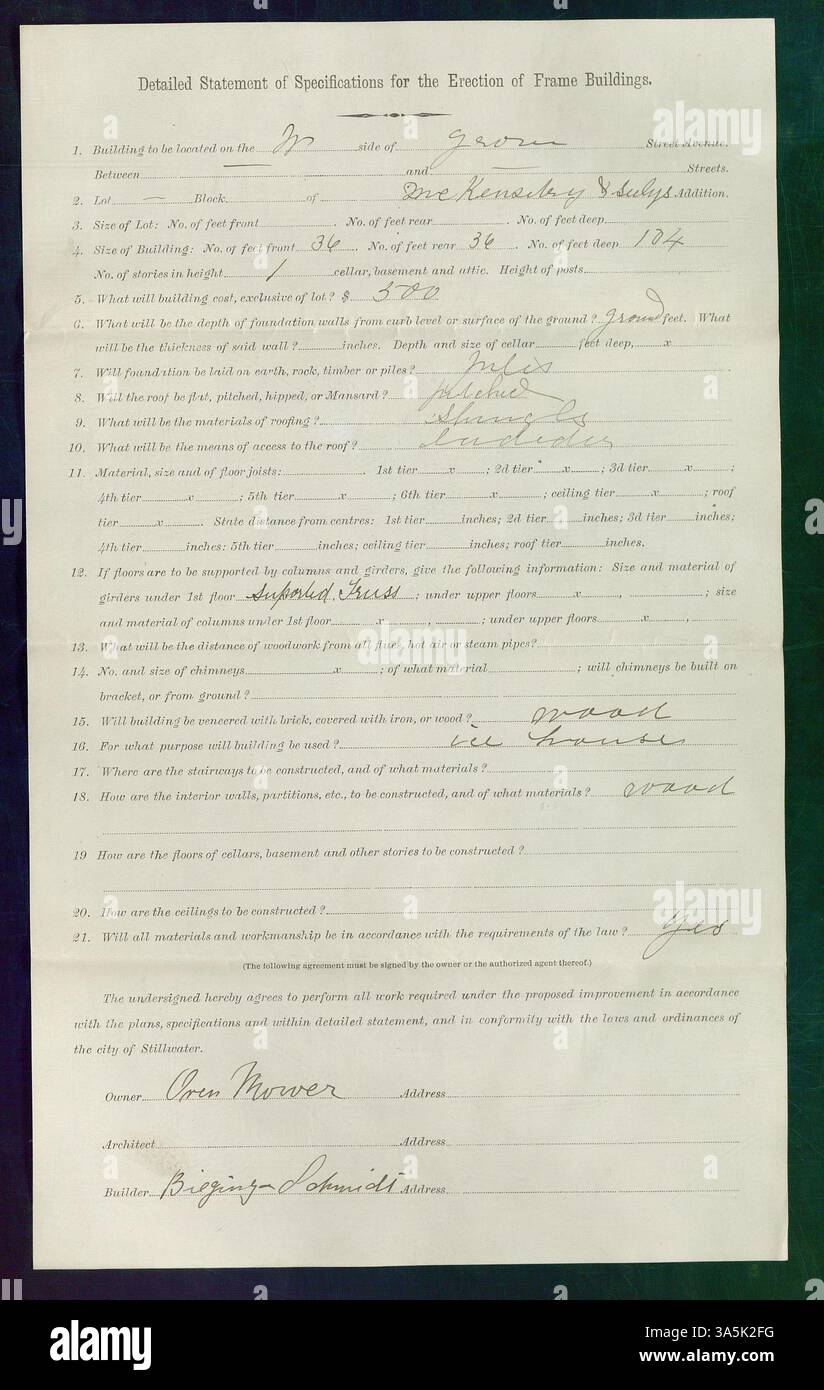 Detailed Statement of Specifications for the Erection of Frame Buildings.
1. Building to be located on the W side of Street Avenue.
Between — and — Streets.
2. Lot — Block of Addition.
3. Size of Lot: No. of feet front . No. of feet rear . No. of feet deep
4. Size of Building: No. of feet front 36 . No. of feet rear 36 . No. of feet deep 104
No. of stories in height 1 cellar, basement and attic. Height of posts
5. What will building cost, exclusive of lot? $ 500
6. What will be the depth of foundation walls from curb level or surface of the ground? ground feet. What
will be the thickness of said wall? inches. Depth and size of cellar feet deep, x
7. Will foundation be laid on earth, rock, timber or piles?
8. Will the roof be flat, pitched, hipped, or Mansard? pitched
9. What will be the materials of roofing? Shingls
10. What will be the means of access to the roof?
11. Material, size and of floor joists: . 1st tier x ; 2d tier x ; 3d tier x ;
4th tier x ; 5th tier x ; 6th tier x ; ceiling tier x ; roof
tier x . State distance from centres: 1st tier inches; 2d tier inches; 3d tier inches;
4th tier inches: 5th tier inches; ceiling tier inches; roof tier inches.
12. If floors are to be supported by columns and girders, give the following information: Size and material of
girders under 1st floor Suported Truss ; under upper floors x , ; size
and material of columns under 1st floor x , ; under upper floors x ,
13. What will be the distance of woodwork from all flues, hot air or steam pipes?
14. No. and size of chimneys x ; of what material ; will chimneys be built on
bracket, or from ground?
15. Will building be veneered with brick, covered with iron, or wood? wood
16. For what purpose will building be used? ice house
17. Where are the stairways to be constructed, and of what materials?
18. How are the interior walls, partitions, etc., to be constructed, and of what materials? wood
19 How are the floors of cellars, basement and other stories to be constructed?
20. How are the ceilings to be constructed?
21. Will all materials and workmanship be in accordance with the requirements of the law? yes
(The following agreement must be signed by the owner or the authorized agent thereof.)
The undersigned hereby agrees to perform all work required under the proposed improvement in accordance
with the plans, specifications and within detailed statement, and in conformity with the laws and ordinances of
the city of Stillwater.
Owner Oren Mower Address
Architect Address
Builder Schmidt Address
alamy
Image ID: 3A5K2FG
www.alamy.com